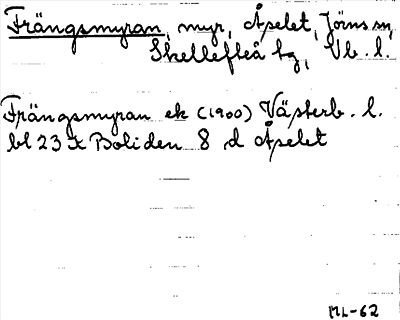 Frängsmyran, myr, Åselet, Jörns sn,
Skellefteå tg, Vb. l.
Frängsmyran ek (1900) Västerb. l.
bl 23 Boliden 8 d Åselet
ML-62